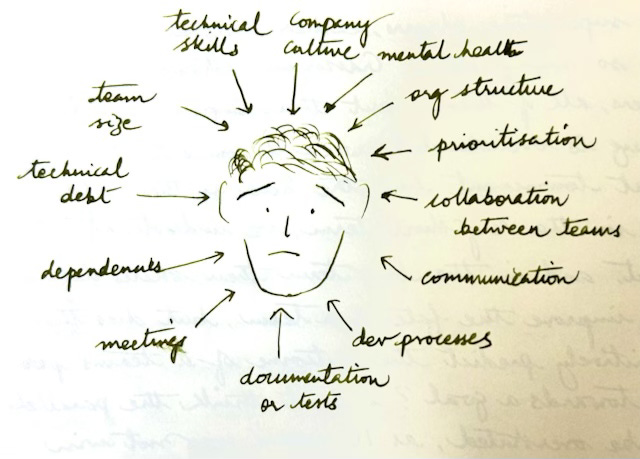 technical
skills
company
culture
mental health
org structure
prioritisation
collaboration
between teams
communication
dev processes
documentation
or tests
meetings
dependencies
technical
debt
team
size